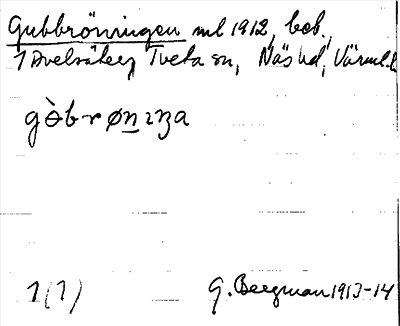 Gubbröningen ml 1912, beb.,
1 Avelsäter, Tveta sn, Näs hd, Värml. l.
gòbrønıŋa
1(1) G. Bergman 1913-14